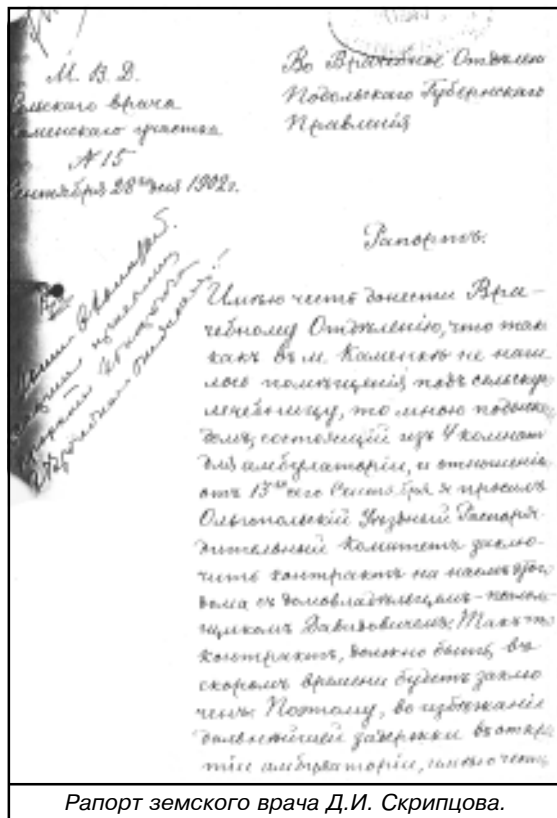 М. В. Д.
Сельскаго врача
Каменскаго участка
№ 15
Сентября 28го дня 1902г.
Во Врачебное Отделен
Подольскаго Губернскаго
Правленія
Рапортъ.
Имѣю честь донести Вра-
чебному Отдѣленію, что такъ
какъ въ м. Каменкѣ не наш-
лось помѣщенія подъ сельскую
лечебницу, то мною подыскан
домъ, состоящій изъ 4 комнат
для амбулаторіи, и отношеніемъ
отъ 13го сего Сентября я просилъ
Ольгопольскій Уѣздный Распоря-
дительный Комитетъ заклю-
чить контрактъ на наемъ этого
дома съ домовладѣльцемъ-
Давидовичемъ. Такъ
контрактъ, должно быть, въ
скоромъ времени будетъ заклю
ченъ. Поэтому, во избѣжаніе
дальнѣйшей задержки въ откры
тіи амбулаторіи, имѣю честь
Рапорт земского врача Д.И. Скрипцова.